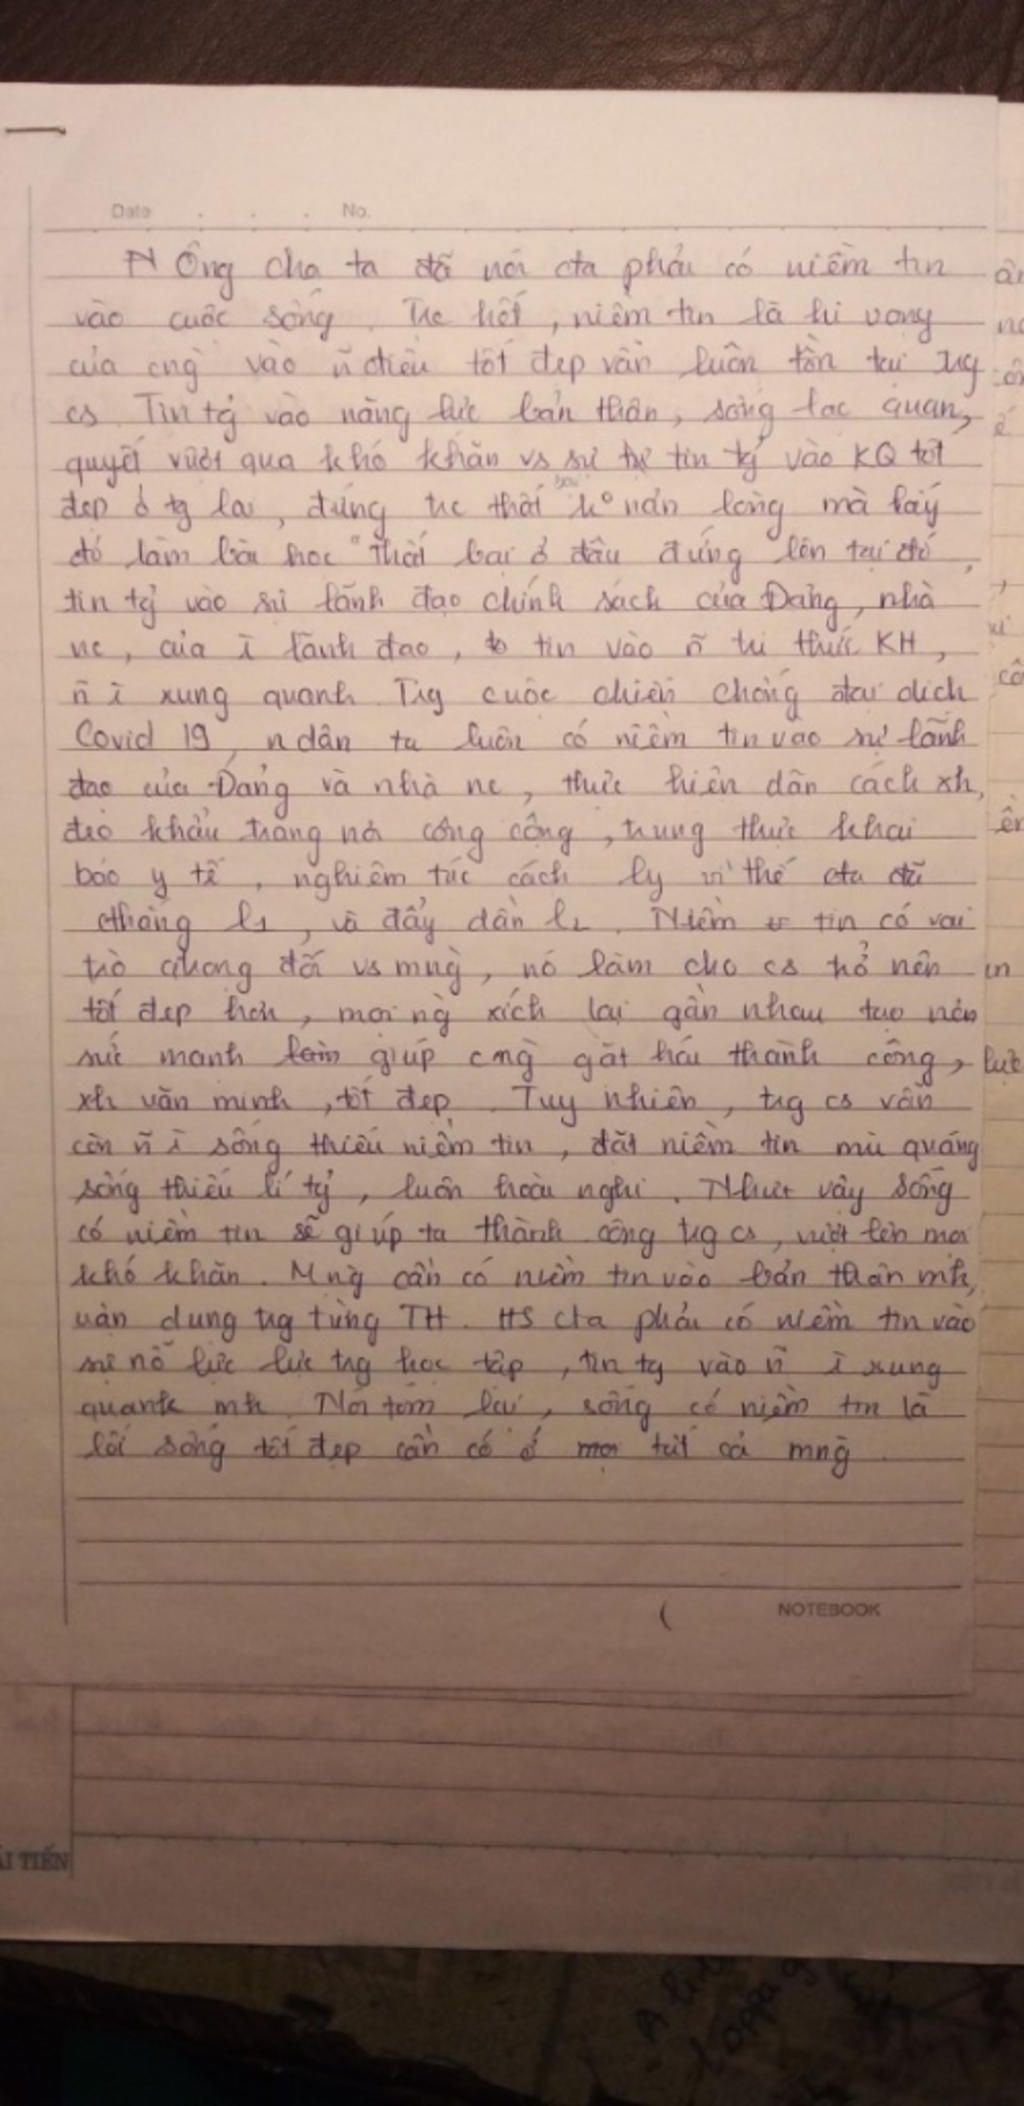 Date . . . No.
Ông cha ta đã nói cta phải có niềm tin
vào cuộc sống. Trc hết, niềm tin là hi vọng
của cng vào ~n điều tốt đẹp vẫn luôn tồn tại trg
cs. Tin tg vào năng lực bản thân, sống lạc quan,
quyết vượt qua khó khăn vs sự tự tin tg vào KQ tốt
đẹp ở tg lai, đứng trc thất bại k° nản lòng mà lấy
đó làm bài học "Thất bại ở đâu đứng lên tại đó,
tin tg vào sự lãnh đạo chính sách của Đảng, nhà
nc, của ĩ lãnh đạo, tin vào ~n tri thức KH,
~n ĩ xung quanh. Trg cuộc chiến chống đại dịch
Covid 19, n dân ta luôn có niềm tin vào sự lãnh
đạo của Đảng và nhà nc, thực hiện dãn cách xh,
đeo khẩu trang nơi công cộng, trung thực khai
báo y tế, nghiêm túc cách ly vì thế cta đã
cthắng l1, và đẩy dần l2. Niềm tin có vai
trò qtrọng đối vs mng, nó làm cho cs trở nên
tốt đẹp hơn, mọi ng xích lại gần nhau tạo nên
sức mạnh giúp cmg gặt hái thành công,
xh văn minh, tốt đẹp. Tuy nhiên, trg cs vẫn
còn ~n ĩ sống thiếu niềm tin, đặt niềm tin mù quáng
sống thiếu lí tg, luôn hoài nghi. Như vậy sống
có niềm tin sẽ giúp ta thành công trg cs, vượt lên mọi
khó khăn. Mng cần có niềm tin vào bản thân mh,
vận dụng trg từng TH. HS cta phải có niềm tin vào
sự nỗ lực trg học tập, tin tg vào ~n ĩ xung
quanh mh. Nói tóm lại, sống có niềm tin là
lối sống tốt đẹp cần có ở tất cả mng.
NOTEBOOK
ẢI TIẾN